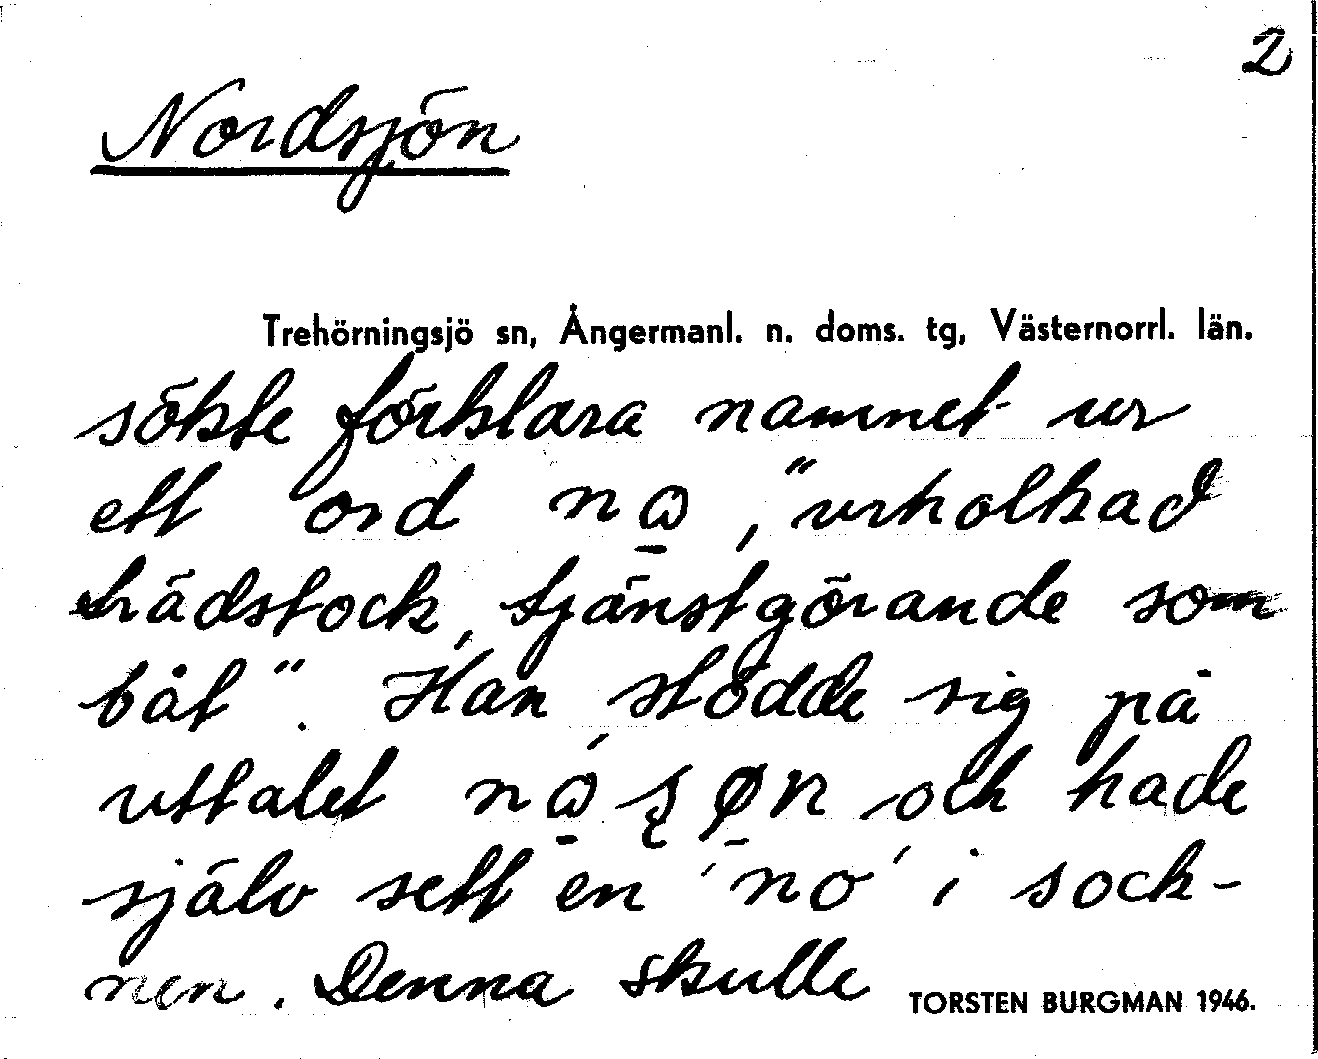 2
Nordsjön
Trehörningsjö sn, Ångermanl. n. doms. tg, Västernorrl. län.
sökte förklara namnet ur
ett ord no̲, "urholkad
trädstock, tjänstgörande som
båt". Han stödde sig på
uttalet och hade
själv sett en 'no' i sock-
nen. Denna skulle
TORSTEN BURGMAN 1946.